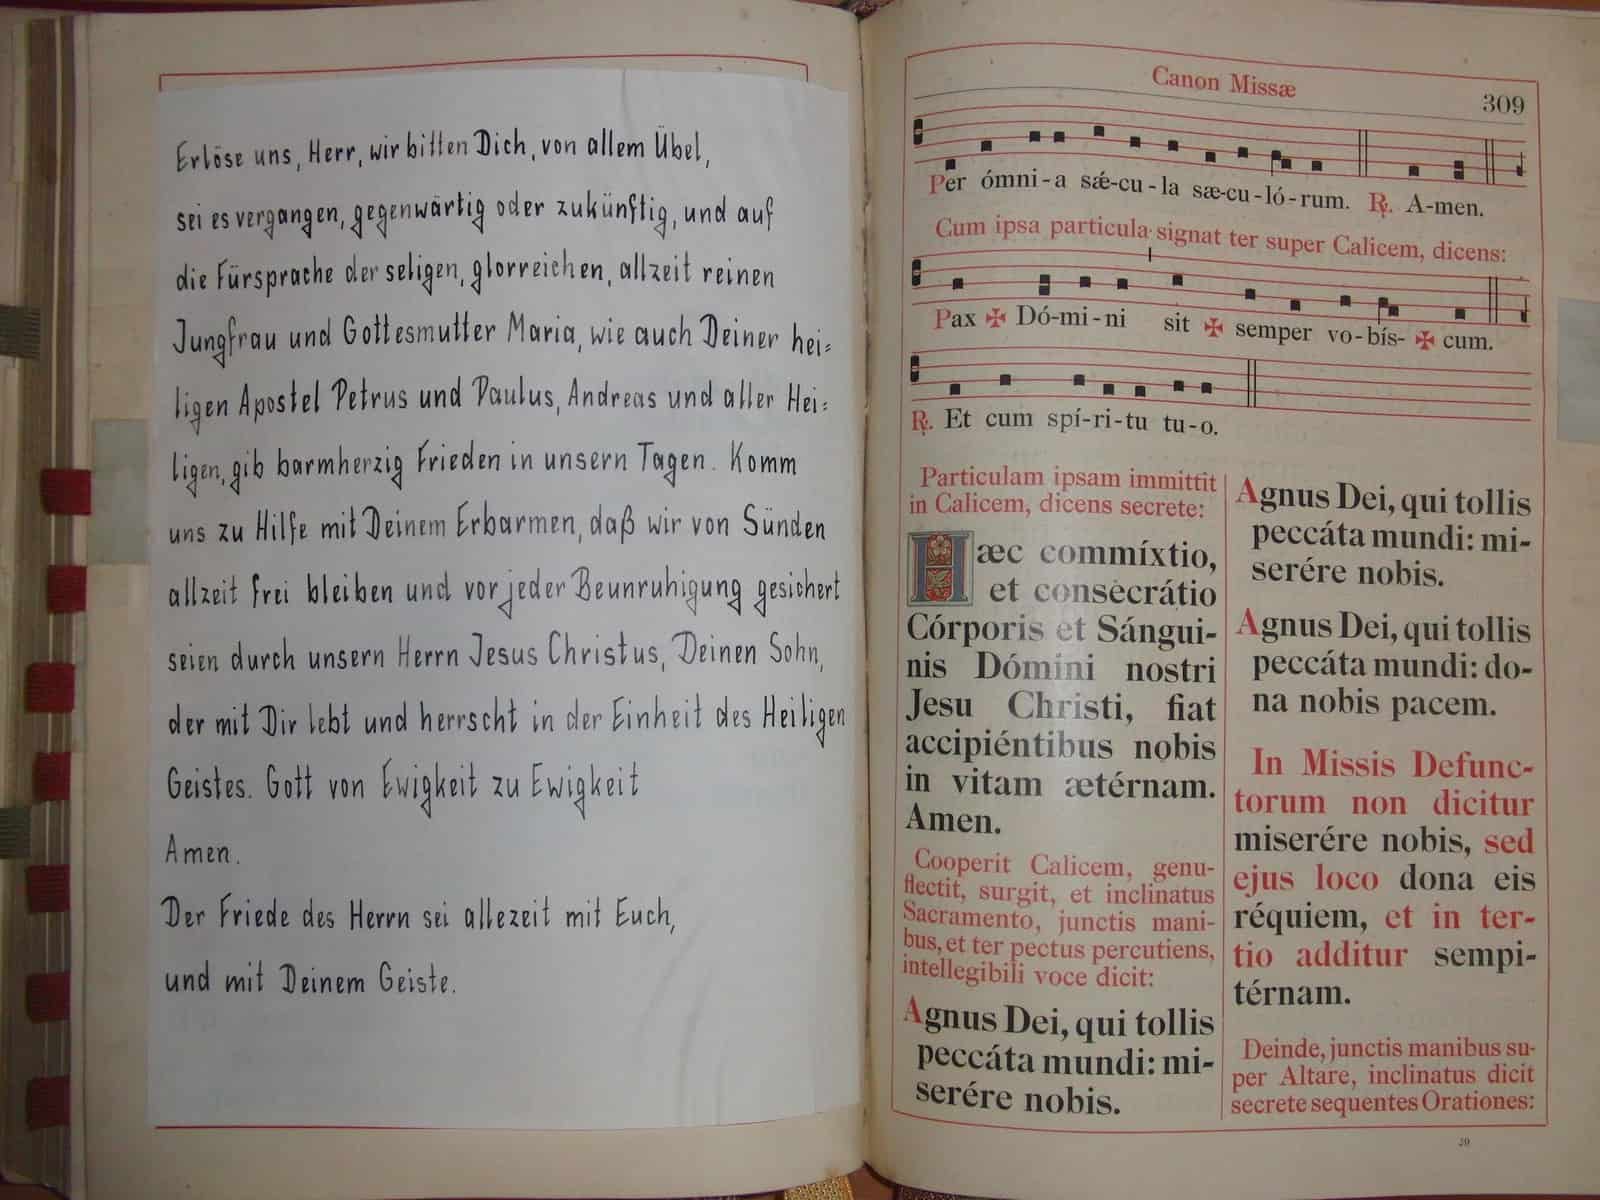 Erlöse uns, Herr, wir bitten Dich, von allem Übel,
sei es vergangen, gegenwärtig oder zukünftig, und auf
die Fürsprache der seligen, glorreichen, allzeit reinen
Jungfrau und Gottesmutter Maria, wie auch Deiner hei=
ligen Apostel Petrus und Paulus, Andreas und aller Hei=
ligen, gib barmherzig Frieden in unsern Tagen. Komm
uns zu Hilfe mit Deinem Erbarmen, daß wir von Sünden
allzeit frei bleiben und vor jeder Beunruhigung gesichert
seien durch unsern Herrn Jesus Christus, Deinen Sohn,
der mit Dir lebt und herrscht in der Einheit des Heiligen
Geistes. Gott von Ewigkeit zu Ewigkeit
Amen.
Der Friede des Herrn sei allezeit mit Euch,
und mit Deinem Geiste.
Canon Missæ
309
Per ómni-a sǽ-cu-la sæ-cu-ló-rum. ℟. A-men.
Cum ipsa particula signat ter super Calicem, dicens:
Pax ✠ Dó-mi-ni sit ✠ semper vo-bís- ✠ cum.
℟. Et cum spí-ri-tu tu-o.
Particulam ipsam immittit
in Calicem, dicens secrete:
Hæc commíxtio,
et consecrátio
Córporis et Sángui-
nis Dómini nostri
Jesu Christi, fiat
accipiéntibus nobis
in vitam ætérnam.
Amen.
Cooperit Calicem, genu-
flectit, surgit, et inclinatus
Sacramento, junctis mani-
bus, et ter pectus percutiens,
intellegibili voce dicit:
Agnus Dei, qui tollis
peccáta mundi: mi-
serére nobis.
Agnus Dei, qui tollis
peccáta mundi: mi-
serére nobis.
Agnus Dei, qui tollis
peccáta mundi: do-
na nobis pacem.
In Missis Defunc-
torum non dicitur
miserére nobis, sed
ejus loco dona eis
réquiem, et in ter-
tio additur sempi-
térnam.
Deinde, junctis manibus su-
per Altare, inclinatus dicit
secrete sequentes Orationes:
20